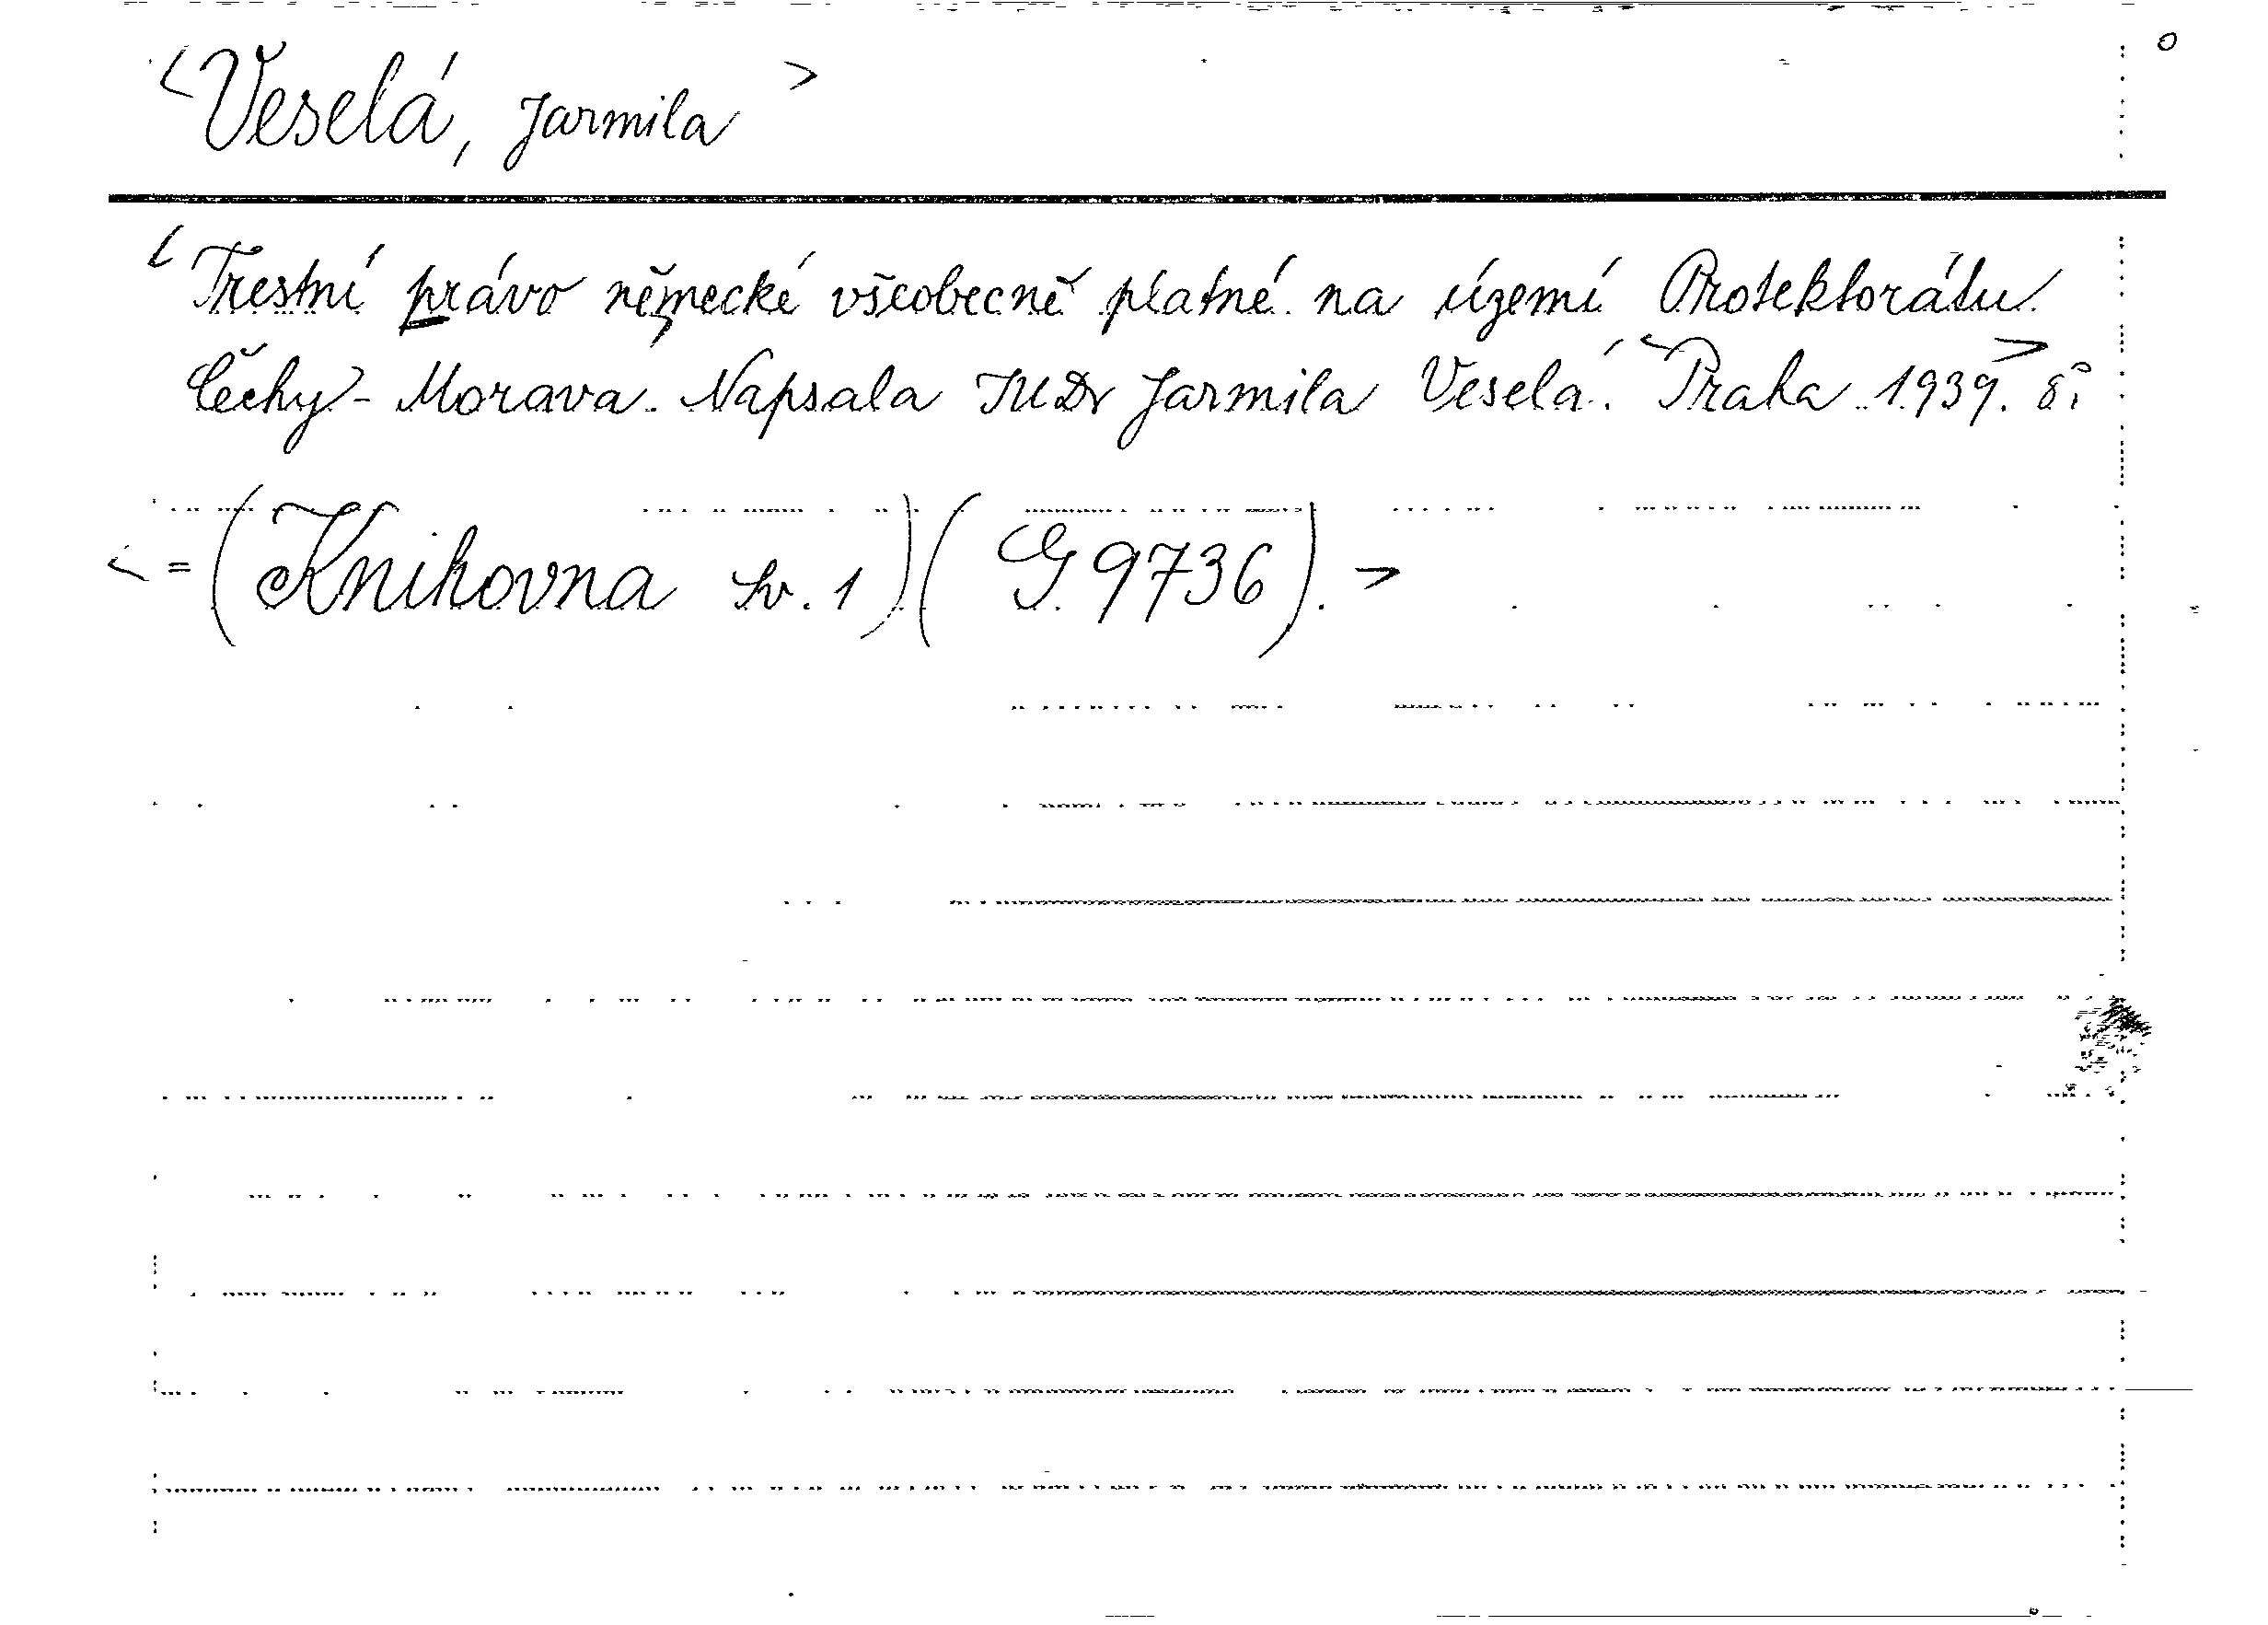 <Veselá, Jarmila>
Trestní právo německé všeobecně platné na území Protektorátu
Čechy-Morava. Napsala JUDr Jarmila Veselá. <Praha 1939.> 8°.
<=(Knihovna sv. 1)(G 9736).>